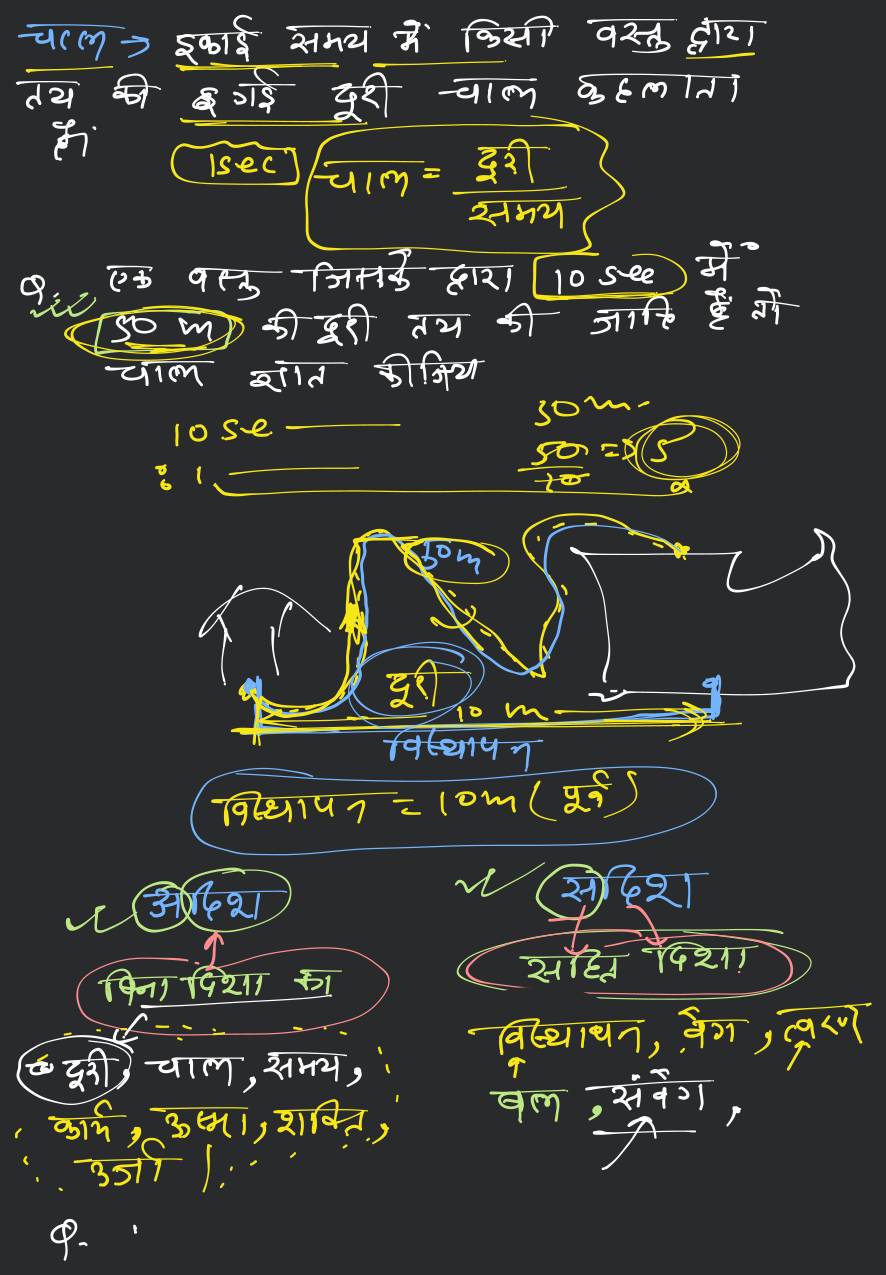 चाल → इकाई समय में किसी वस्तु द्वारा
तय की गई दूरी चाल कहलाता
है।
1sec
चाल = दूरी / समय
Q. एक वस्तु जिसके द्वारा 10 sec में
50 m की दूरी तय की जाति है तो
चाल ज्ञात कीजिय
10 se 50m
1 50/10 = 5
50m
दूरी
10 m
विस्थापन
विस्थापन = 10m (पूर्व)
अदिश
सदिश
बिना दिशा का
सहित दिशा
दूरी, चाल, समय,
कार्य, ऊष्मा, शक्ति,
उर्जा ।
विस्थापन, वेग, त्वरण
बल, संवेग,
Q.